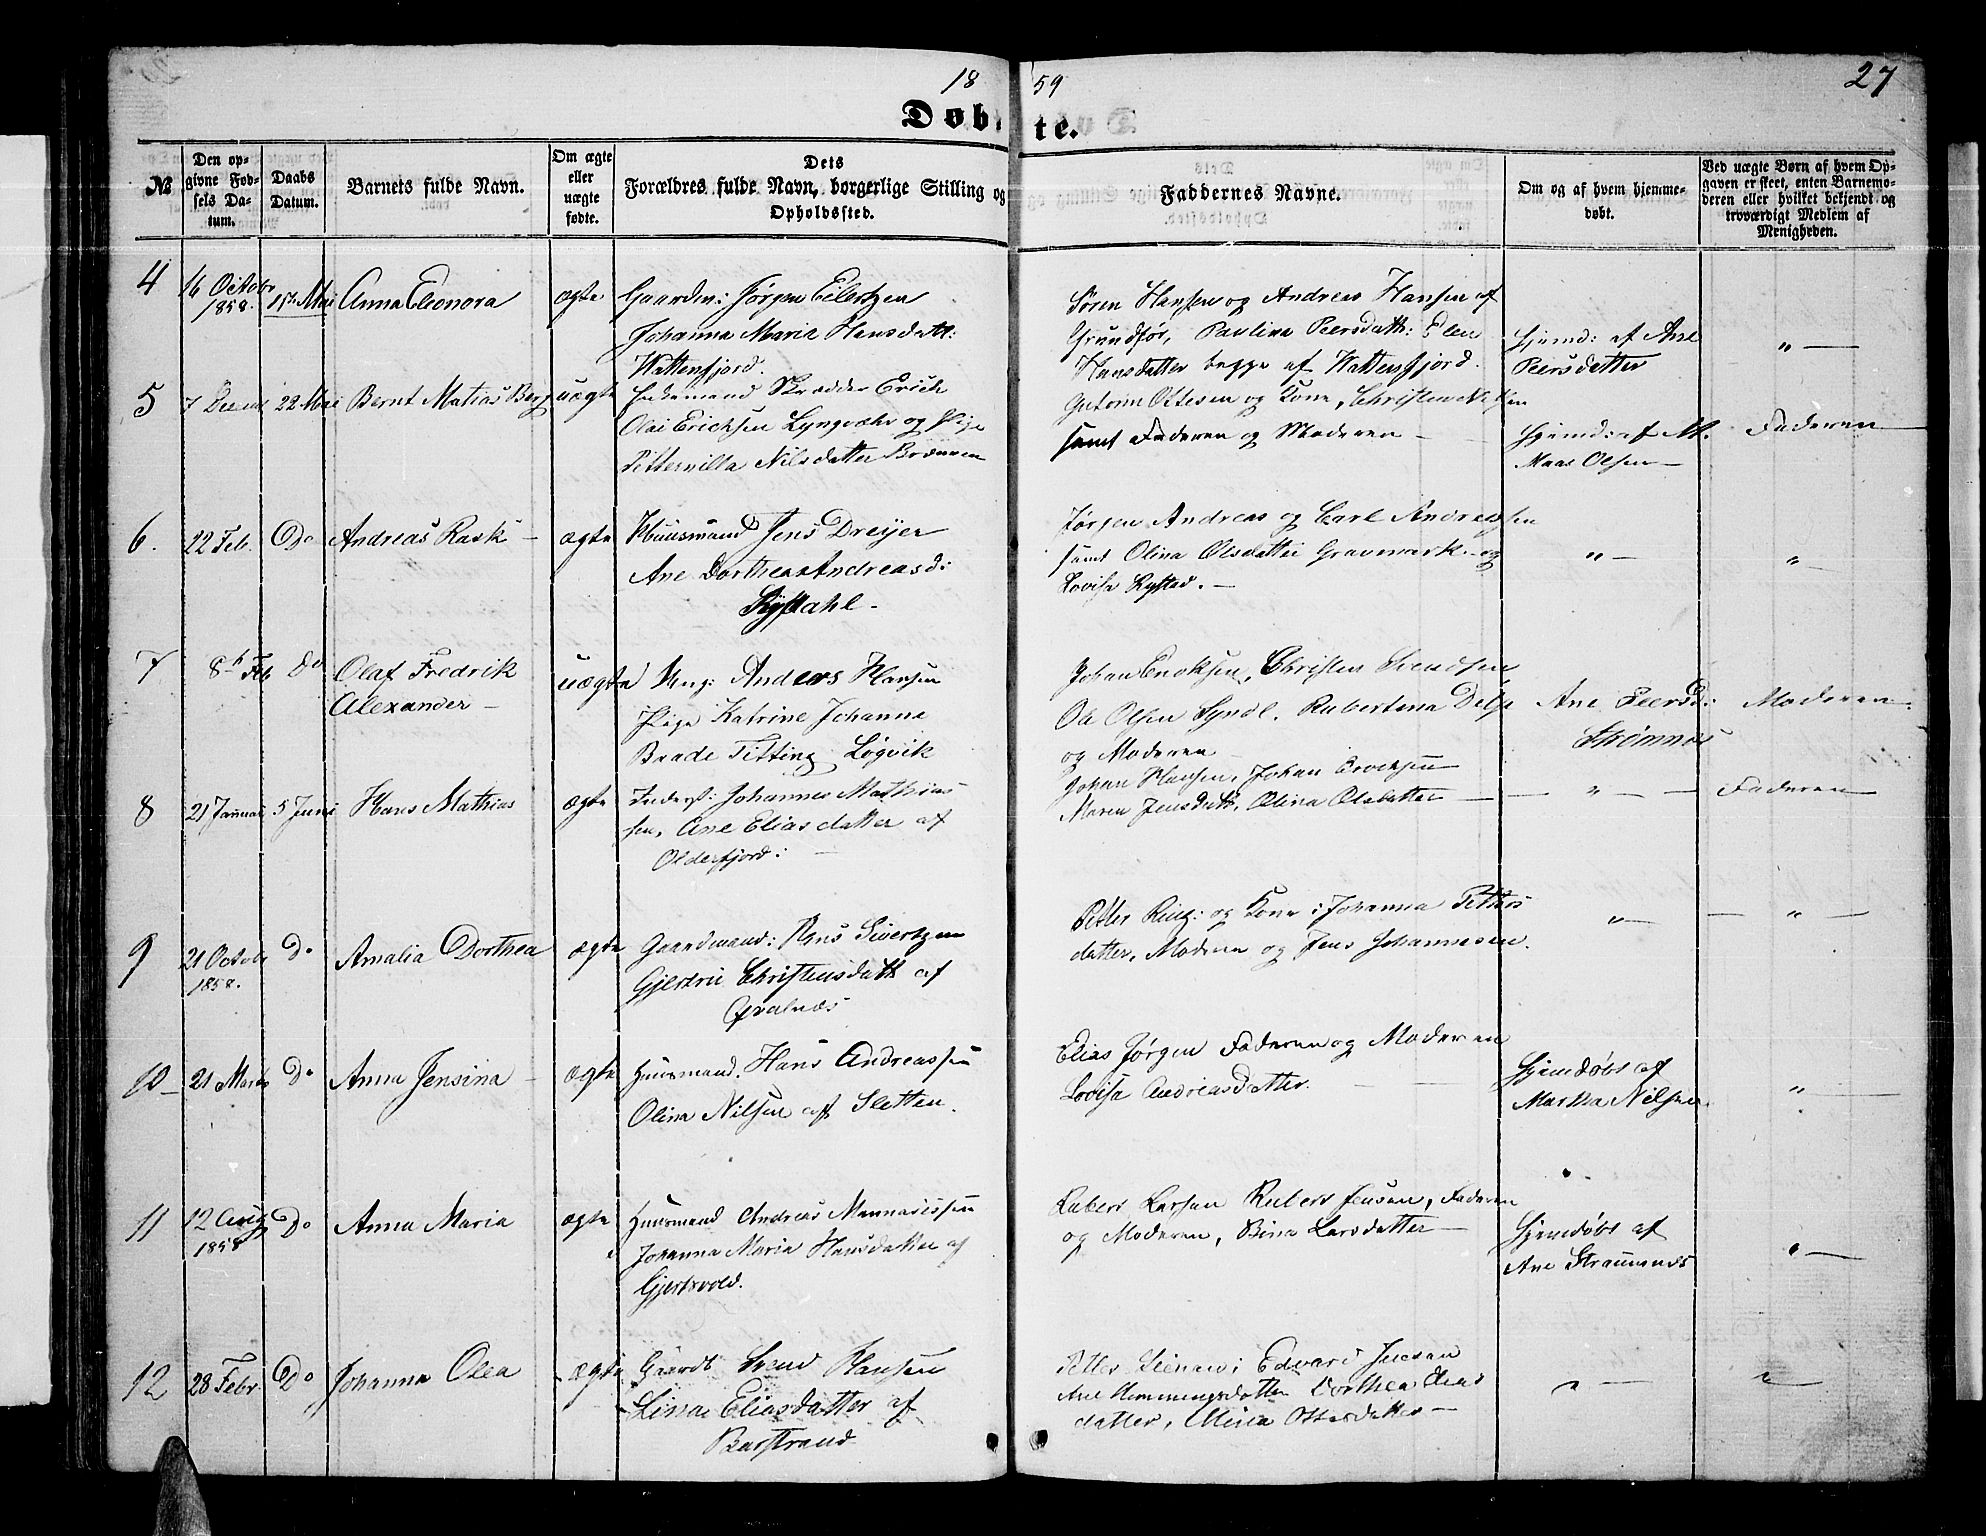 18 59 27
Døbte.
№
Den opgivne Fødsels Datum.
Daabs Datum.
Barnets fulde Navn.
Om ægte eller uægte fødte.
Dets Forældres fulde Navn, borgerlige Stilling og Opholdssted.
Faddernes Navne.
Om og af hvem hjemmedøbt.
Ved uægte Børn af hvem Opgaven er skeet, enten Barnemoderen eller hvilket bekjendt og troværdigt Medlem af Menigheden.
4 16 Octobr 1858. 15de Mai Anna Eleonora ægte Gaardm: Jørgen Eilertzen
Johanna Maria Hansdatt:
Wattenfjord.
Søren Hansen og Andreas Hansen af
Grundfør, Paulina Peersdatt: Elen
Hansdatter begge af Wattenfjord.
Hjemd: af Ane
Peersdatter
" —
5 7 22 Mai Bernt Matias Berg uægte Enkemand Skrædder Erich
Olai Ericksen Lyngvæhr og Pige
Petternilla Nilsdatter
Guttorm Ottesen og Kone, Christen
samt Faderen og Moderen —
Hjemd: af
Maas Olsen —
Faderen
6. 22 Feb. Do Andreas Rask — ægte Huusmand Jens Dreyer
Ane Dorthea Andreasd:
Jørgen Andreas og Carl Andreassen
samt Olina Olsdatter Gravmark - og
Lovisa Rystad. —
" —
" —
7 8de Feb Do Olaf Fredrik
Alexander —
uægte Ung: Anders Hansen
Pige Katrine Johanne
Brade Løgvik
Johan Enoksen, Christen Svendsen
Ole Olsen Rubertena
og Moderen
Ane Peersd:
Strømnæs
Moderen.
8 21 Januar 5 Juni Hans Mathias ægte Inderst: Johannes Mathias
sen, Ane Eliasdatter af
Olderfjord: —
Johan Hansen, Johan Enocksen
Maren Jensdatt, Olina Olsdatter —
— " — —
Faderen
9 21 Octobr 1858. Do Amalia Dorthea ægte Gaardmand: Hans Sivertzen
Gjertrü Christensdatt af
Petter Ring: og Kone: Johanna Petters
datter, Moderen og Jens Johannesen.
" —
— " —
10 — 21 Marts Do Anna Jensina — ægte Huusmand. Hans Andreassen
Olina Nilsen af Sletten.
Elias Jørgen Faderen og Moderen
Lovisa Andreasdatter. —
Hjemdøbt af
Martha Nilsen.
" —
11 12 Aug 1858 Do Anna Maria ægte Huusmand Andreas
Johanna Maria Hansdatter af
Gjertsvold.
Rubert Larsen Rubert Jensen, Faderen
og Moderen, Bina Larsdatter —
Hjemdøbt af
Ane Straumnæs
" —
12 28 Febr. Do Johanna Olea — ægte Gaardb Svend Hansen
Lina Eliasdatter af
Barstrand
Petter Edvard Jensen
Ane Hemmingsdatter Dorthea Elias
datter, Ottesdatter —
" —
" —